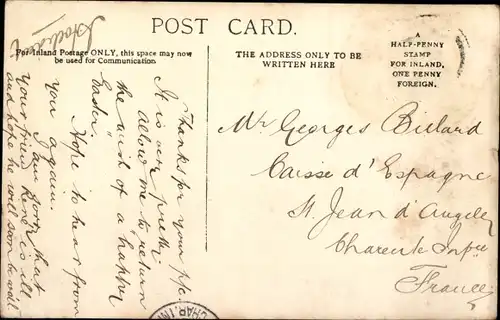 POST CARD.
For Inland Postage ONLY, this space may now
be used for Communication
THE ADDRESS ONLY TO BE
WRITTEN HERE
A
HALF-PENNY
STAMP
FOR INLAND,
ONE PENNY
FOREIGN.
Thanks for your p/c.
It is very pretty
Allow me to return
the wish of a happy
Easter.
Hope to hear from
you again.
I am sorry that
your friend René is ill
and hope he will soon be well
Mr Georges Billard
Caisse d'Espagne
St. Jean d'Angely
Charente Infre
France
CHAR. INF